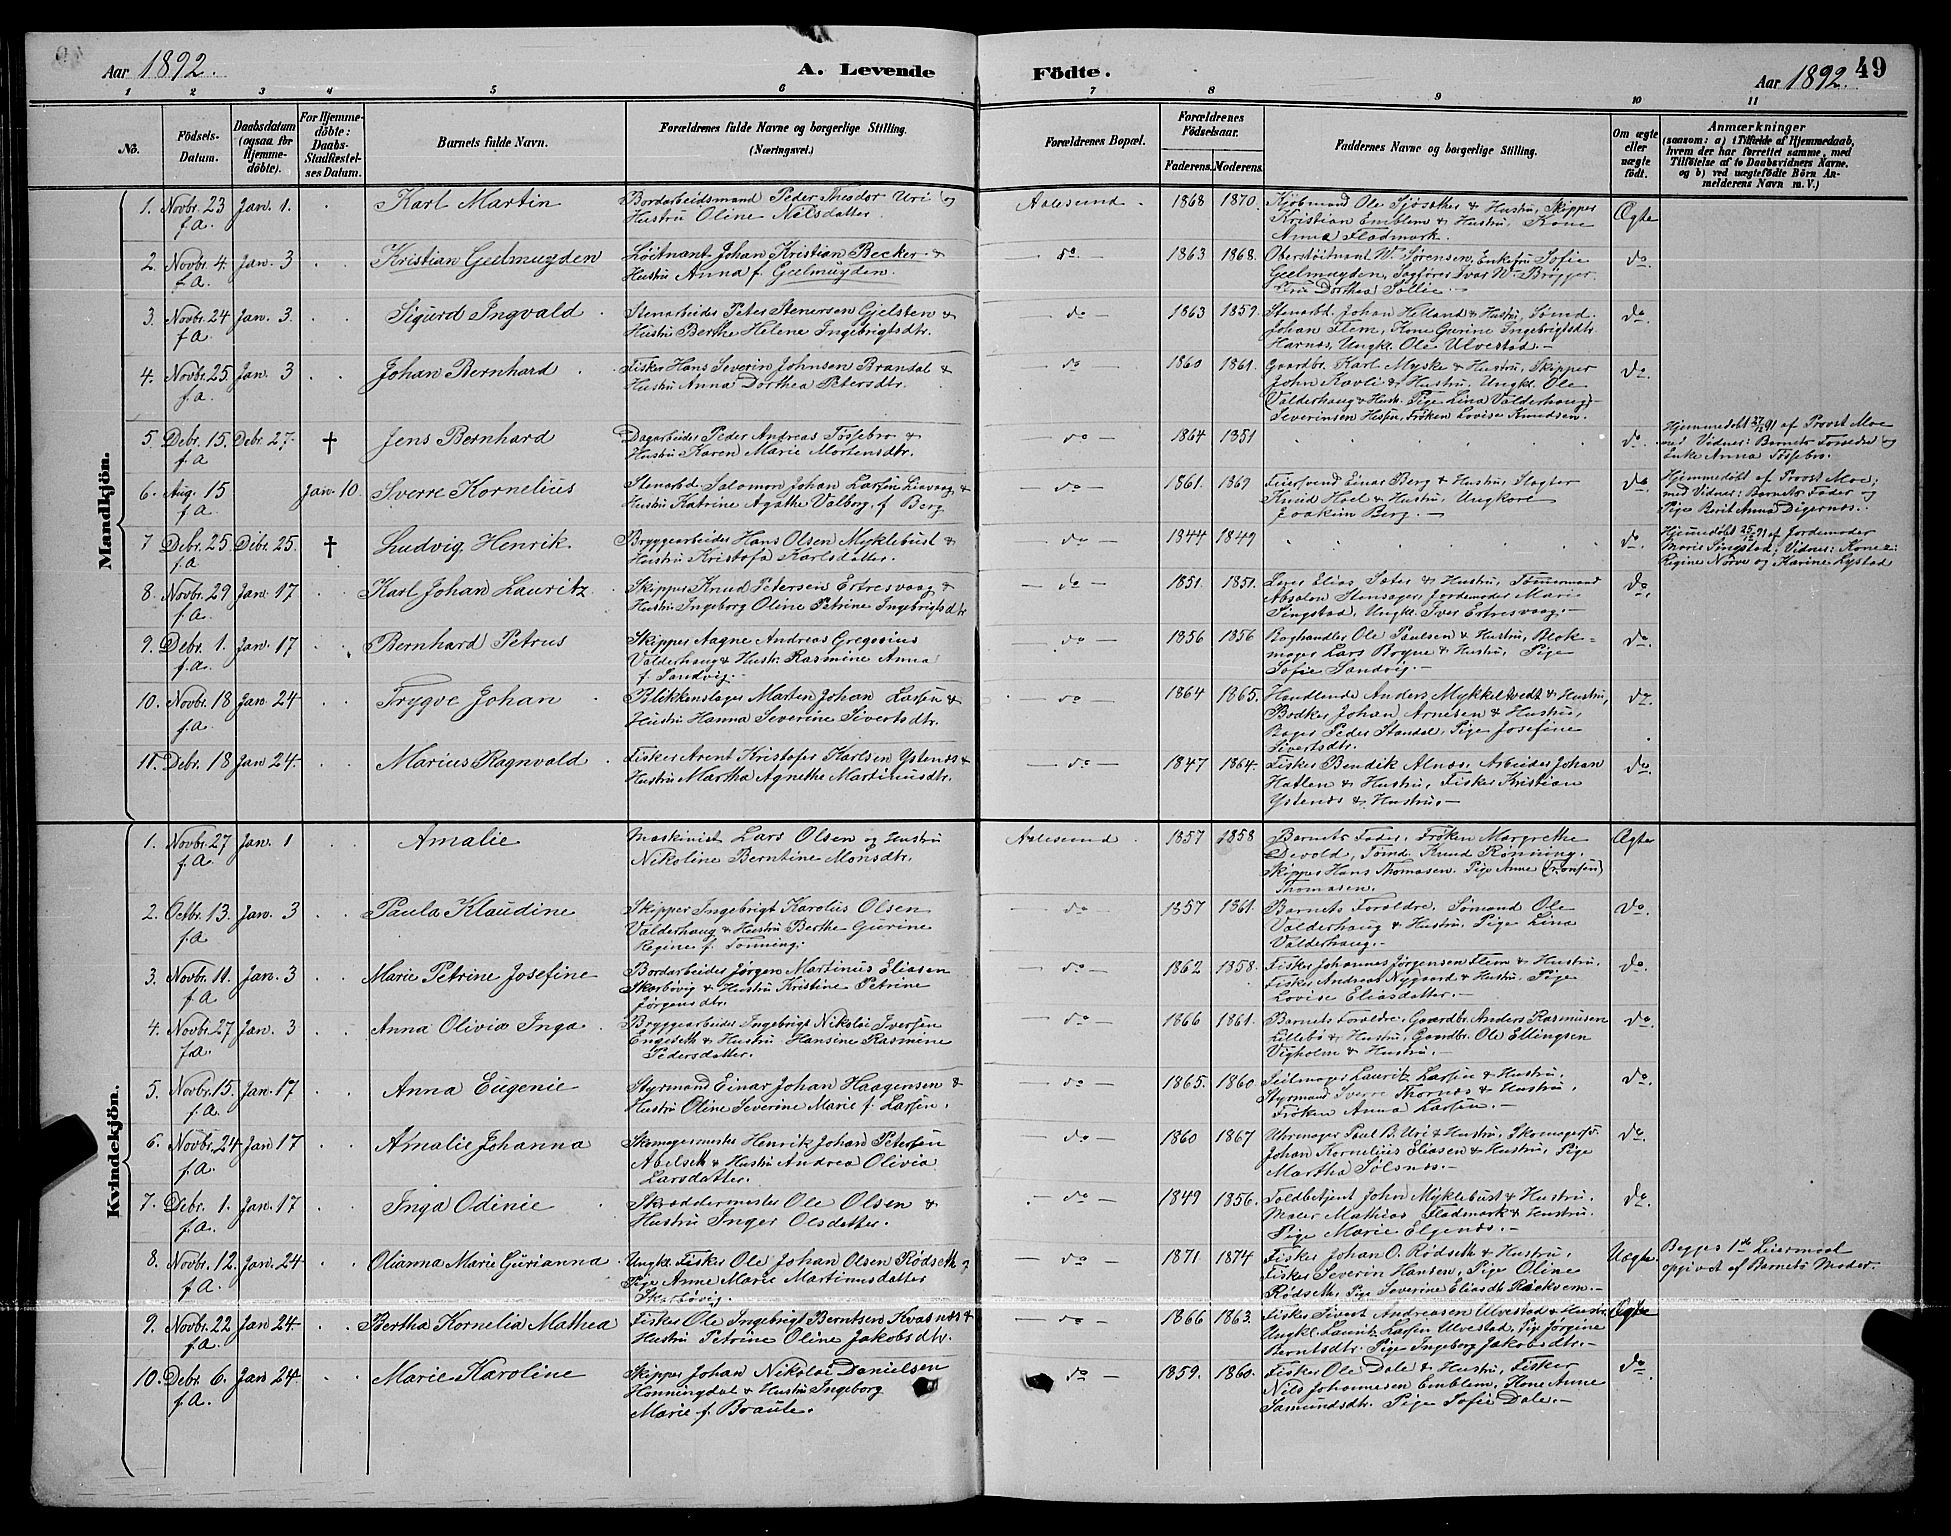 Aar 1892.
A. Levende Födte.
Aar 1892. 49
1 2 3 4 5 6 7 8 9 10 11
No.
Födsels-Datum.
Daabsdatum (ogsaa for Hjemmedöbte).
For Hjemmedöbte: Daabs-Stadfæstelses Datum.
Barnets fulde Navn.
Forældrenes fulde Navne og borgerlige Stilling.
(Næringsvei.)
Forældrenes Bopæl.
Forældrenes Födselsaar.
Faderens. Moderens.
Faddernes Navne og borgerlige Stilling.
Om ægte eller uægte födt.
Anmærkninger
(saasom: a) i Tilfælde af Hjemmedaab, hvem der har forrettet samme, med Tilföielse af to Daabsvidners Navne. og b) ved uægtefödte Börn Anmelderens Navn m. V.)
Mandkjön.
1. Novbr. 23 f.a. Jan. 1. Karl Martin
Bordarbeidsmand Peder Theodor Uri og
Hustru Oline Nilsdatter.
Aalesund. 1868 1870.
Kjöbmand Ole Sjösæther & Hustru, Skipper
Kristian Emblem & Hustru, Kone
Anna Fladmark.
Ægte
2. Novbr. 4. f.a. Jan. 3 Kristian Geelmuyden
Löitnant Johan Kristian Becker &
Hustru Anna f. Geelmuyden.
do 1863 1868.
Oberstlöitnant W. Sørensen, Enkefru Sofie
Geelmuyden, Sagförer Ivar W. Brögger
Fru Dorthea Sollie.
do
3. Novbr. 24 f.a. Jan. 3. Sigurd Ingvald
Stenarbeider Peter Stenersen Gjelsten &
Hustru Berthe Helene Ingebrigtsdtr.
do 1863 1859.
Stenarbd. Johan Helland & Hustru, Sømd.
Johan Flem, Kone Gurine Ingebrigtsdtr.
Harnes, Ungkl. Ole Ulvestad.
do
4. Novbr. 25. f.a. Jan. 3 Johan Bernhard
Fisker Hans Severin Johnsen Brandal &
Hustru Anna Dorthea Petersdtr.
do 1860 1861.
Gaardbr. Karl Myske & Hustru, Skipper
John Kavli & Hustru, Ungkl. Ole
Valderhaug & Hustr. Pige Lina Valderhaug
Severinsen Hessen, Fröken Lovise Knudsen.
do
5 Debr. 15. f.a Debr. 27. † Jens Bernhard
Dagarbeider Peder Andreas Tössebro &
Hustru Karen Marie Mortensdtr.
do 1864 1851
do.
Hjemmedöbt 27/12 91 af Provst Moe
med Vidner: Barnets Forældre og
Enke Anna Tössebro.
6. Aug. 15 f.a. Jan. 10. Sverre Kornelius
Stenarbd. Salomon Johan Larsen Liavaag &
Hustru Katrine Agathe Valborg f. Berg
do 1861. 1869
Fuirsvend Einar Berg & Hustru, Slagter
Knud Hoel & Hustru, Ungkarl
Joakim Berg.
do
Hjemmedöbt af Provst Moe;
med Vidner: Barnets Fader og
Pige Berit Anna Digernes.
7 Debr. 25. f.a Debr. 25. † Ludvig Henrik
Bryggearbeider Hans Olsen Myklebust &
Hustru Kristofa Karlsdatter.
do 1844 1849
do.
Hjemmedöbt 25/12 91 af Jordemoder
Marie Singstad; Vidner: Kone
Regine Nörve og Karine Lystad
8. Novbr. 29 f.a. Jan. 17 Karl Johan Lauritz
Skipper Knud Petersen Ertresvaag &
Hustru Ingeborg Oline Petrine Ingebrigtsdtr
do 1851. 1851.
Lærer Elias Sæter & Hustru, Tömmermand
Absalon Stensager, Jordemoder Marie
Singstad, Ungkl. Iver Ertresvaag.
do
9. Debr. 1. f.a. Jan. 17 Bernhard Petrus
Skipper Aagne Andreas Gregorius
Valderhaug & Hustr. Rasmine Anna
f. Sandvig.
do 1856 1856
Boghandler Ole Paulsen & Hustru, Blok-
mager Lars Brune & Hustru, Pige
Sofie Sandvig.
do
10. Novbr. 18 f.a. Jan. 24 Trygve Johan
Blikkenslager Martin Johan Larsen &
Hustru Hanna Severine Sivertsdtr.
do 1864 1865.
Handlende Anders Mykkeltvedt & Hustru,
Bödker Johan Arnesen & Hustru,
Bager Peder Standal, Pige Josefine
Sivertsdtr.
do
11. Debr. 18 Jan 24. Marius Ragnvald
Fisker Arent Kristofer Karlsen Ystenes &
Hustru Martha Agnethe Martinusdtr.
do 1847 1864.
Fisker Bendik Alnæs, Arbeider Johan
Hatlen & Hustru, Fisker Kristian
Ystenes & Hustru.
do
Kvindekjön.
1. Novbr. 27 f.a. Jan. 1 Amalie
Maskinist Lars Olsen og Hustru
Nikoline Berntine Monsdtr.
Aalesund. 1857 1858
Barnets Fader, Fröken Margrethe
Devold, Tömd. Knud Rönning,
Skipper Hans Thomasen, Pige Anne (Tronsen)
Thomasen.
Ægte
2. Octbr. 13. f.a Jan. 3 Paula Klaudine
Skipper Ingebrigt Karolius Olsen
Valderhaug & Hustru Berthe Gurine
Regine f. Tönning.
do 1857 1861.
Barnets Forældre, Sömand Ole
Valderhaug & Hustru, Pige Lina
Valderhaug.
do.
3. Novbr. 11. f.a Jan. 3 Marie Petrine Josefine
Bordarbeider Jørgen Martinus Eliasen
Skarbövig & Hustru Kristine Petrine
Jörgensdtr.
do 1862 1858.
Fisker Johannes Jörgensen Flem & Hustru,
Fisker Andreas Nygaard & Hustru, Pige
Lovise Eliasdatter.
do.
4. Novbr. 27 f.a. Jan. 3 Anna Olivia Inga
Bryggearbeider Ingebrigt Nikolai Iversen
Engeseth & Hustru Hansine Rasmine
Pedersdatter.
do 1866 1861.
Barnets Forældre, Gaardbr. Anders Rasmusen
Lillebö & Hustru, Gaardbr. Ole Ellingsen
Vigholm & Hustru.
do.
5. Novbr. 15. f.a. Jan. 17 Anna Eugenie
Styrmand Einar Johan Haagensen &
Hustru Oline Severine Marie f. Larsen.
do 1865. 1860
Seilmager Lauritz Larsen & Hustru,
Styrmand Sverre Thornes & Hustru,
Fröken Anna Larsen.
do.
6. Novbr. 24 f.a. Jan 17 Amalie Johanna
Skomagermester Henrik Johan Petersen
Abelseth & Hustru Andrea Olivia
Larsdatter.
do 1860 1867
Uhrmager Paul B. Uri & Hustru, Skomagersv.
Johan Kornelius Eliasen & Hustru, Pige
Martha Solsnes.
do.
7. Debr. 1. f.a. Jan. 17 Inga Odinie
Skræddermester Ole Olsen &
Hustru Inger Olsdatter.
do 1849 1856.
Toldbetjent John Myklebust & Hustru,
Maler Mathias Fladmark & Hustru,
Pige Marie Elgenes.
do.
8. Novbr. 12. f.a. Jan. 24 Olianna Marie Gurianna
Ungkl. Fisker Ole Johan Olsen Rödseth og
Pige Anne Marie Martinusdatter
Skarbövig.
do 1871 1874
Fisker Johan O. Rødseth & Hustru,
Fisker Severin Hansen, Pige Oline
Rödseth, Pige Severine Eliasdtr Ræstvern.
Uægte
Begges 1ste Leiermaal
opgivet af Barnets Moder.
9. Novbr. 22. f.a. Jan 24. Bertha Kornelia Mathea
Fisker Ole Ingebrigt Berntsen Kvasnes &
Hustru Petrine Oline Jakobsdtr.
do 1866 1863.
Fisker Sivert Andreasen Ulvestad & Hustr.
Ungkl. Lauritz Larsen Ulvestad, Pige Jörgine
Berntsdtr. Pige Ingeborg Jakobsdtr.
Ægte
10. Debr. 6. f.a. Jan 24. Marie Karoline
Skipper Johan Nikolai Danielsen
Henningdal & Hustru Ingeborg
Marie f. Braute.
do 1859. 1860.
Fisker Ole Dale & Hustru, Fisker
Nils Johannesen Emblem, Kone Anne
Samundsdtr. Pige Sofie Dale.
do